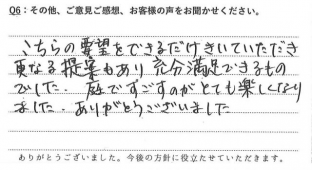 Q6：その他、ご意見ご感想、お客様の声をお聞かせください。
こちらの要望をできるだけきいていただき
更なる提案もあり充分満足できるもの
でした. 庭ですごすのがとても楽しくなり
ました. ありがとうございました
ありがとうございました。今後の方針に役立たせていただきます。